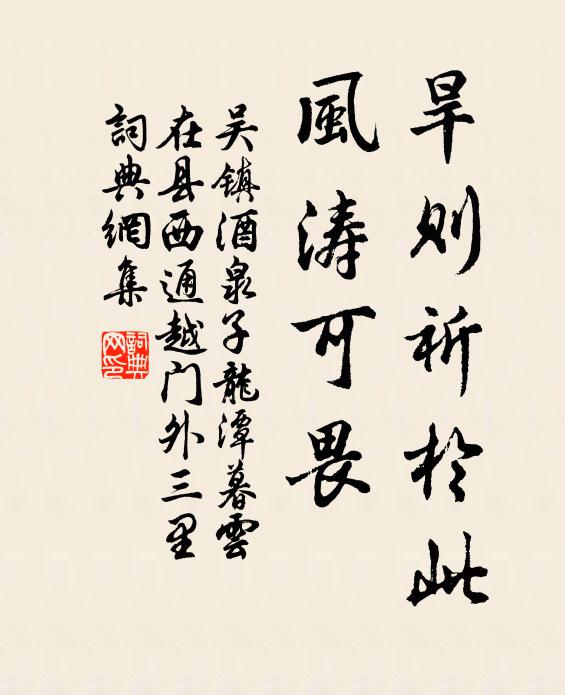 旱则祈於此
風涛可畏
吴镇酒泉子龍潭暮雲
在县西通越门外三里
詞典網集
詞典網印